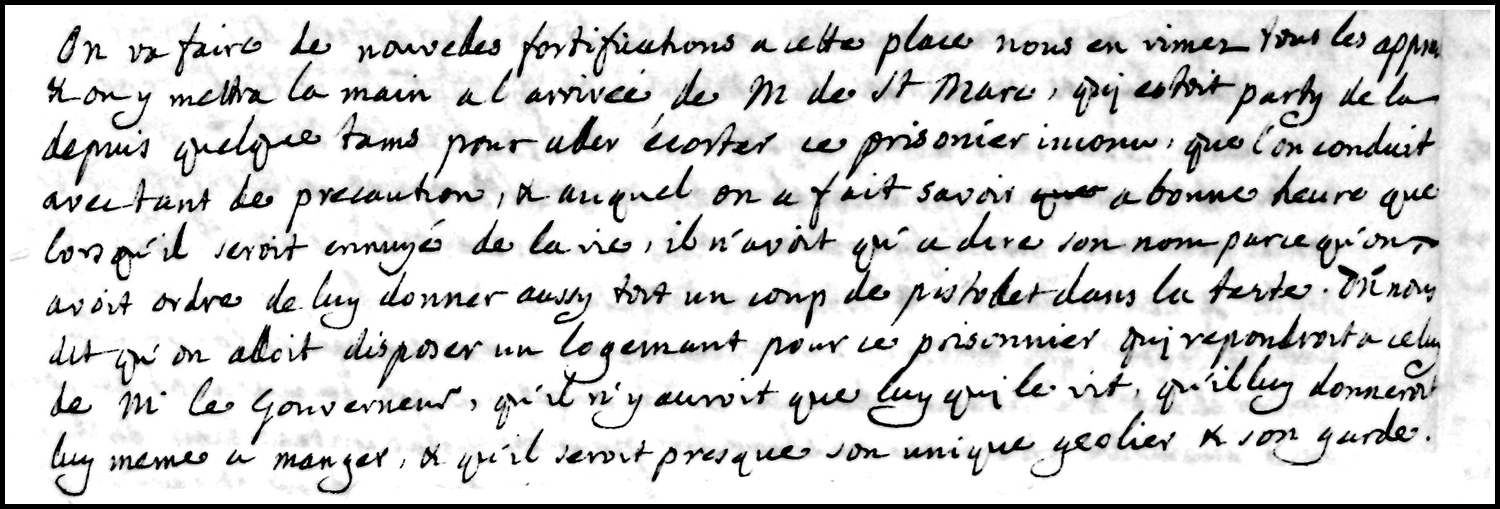 On va faire de nouvelles fortifications a cette place nous en vimes tous les appres
& on y mettra la main a l'arrivée de M de St Marc, qui estoit party de la
depuis quelque tams pour aller écorter ce prisonier inconu, que l'on conduit
avec tant de precaution, & auquel on a fait savoir que a bonne heure que
lorsqu'il seroit ennuyé de la vie, il n'avoit qu'a dire son nom parce qu'on
avoit ordre de luy donner aussy tost un coup de pistolet dans la teste. On nous
dit qu'on alloit disposer un logemant pour ce prisonnier qui repondroit a celuy
de Mr le Gouverneur, qu'il n'y auroit que luy qui le vit, qu'il luy donneroit
luy meme a manger, & qu'il seroit presque son unique geolier & son garde.